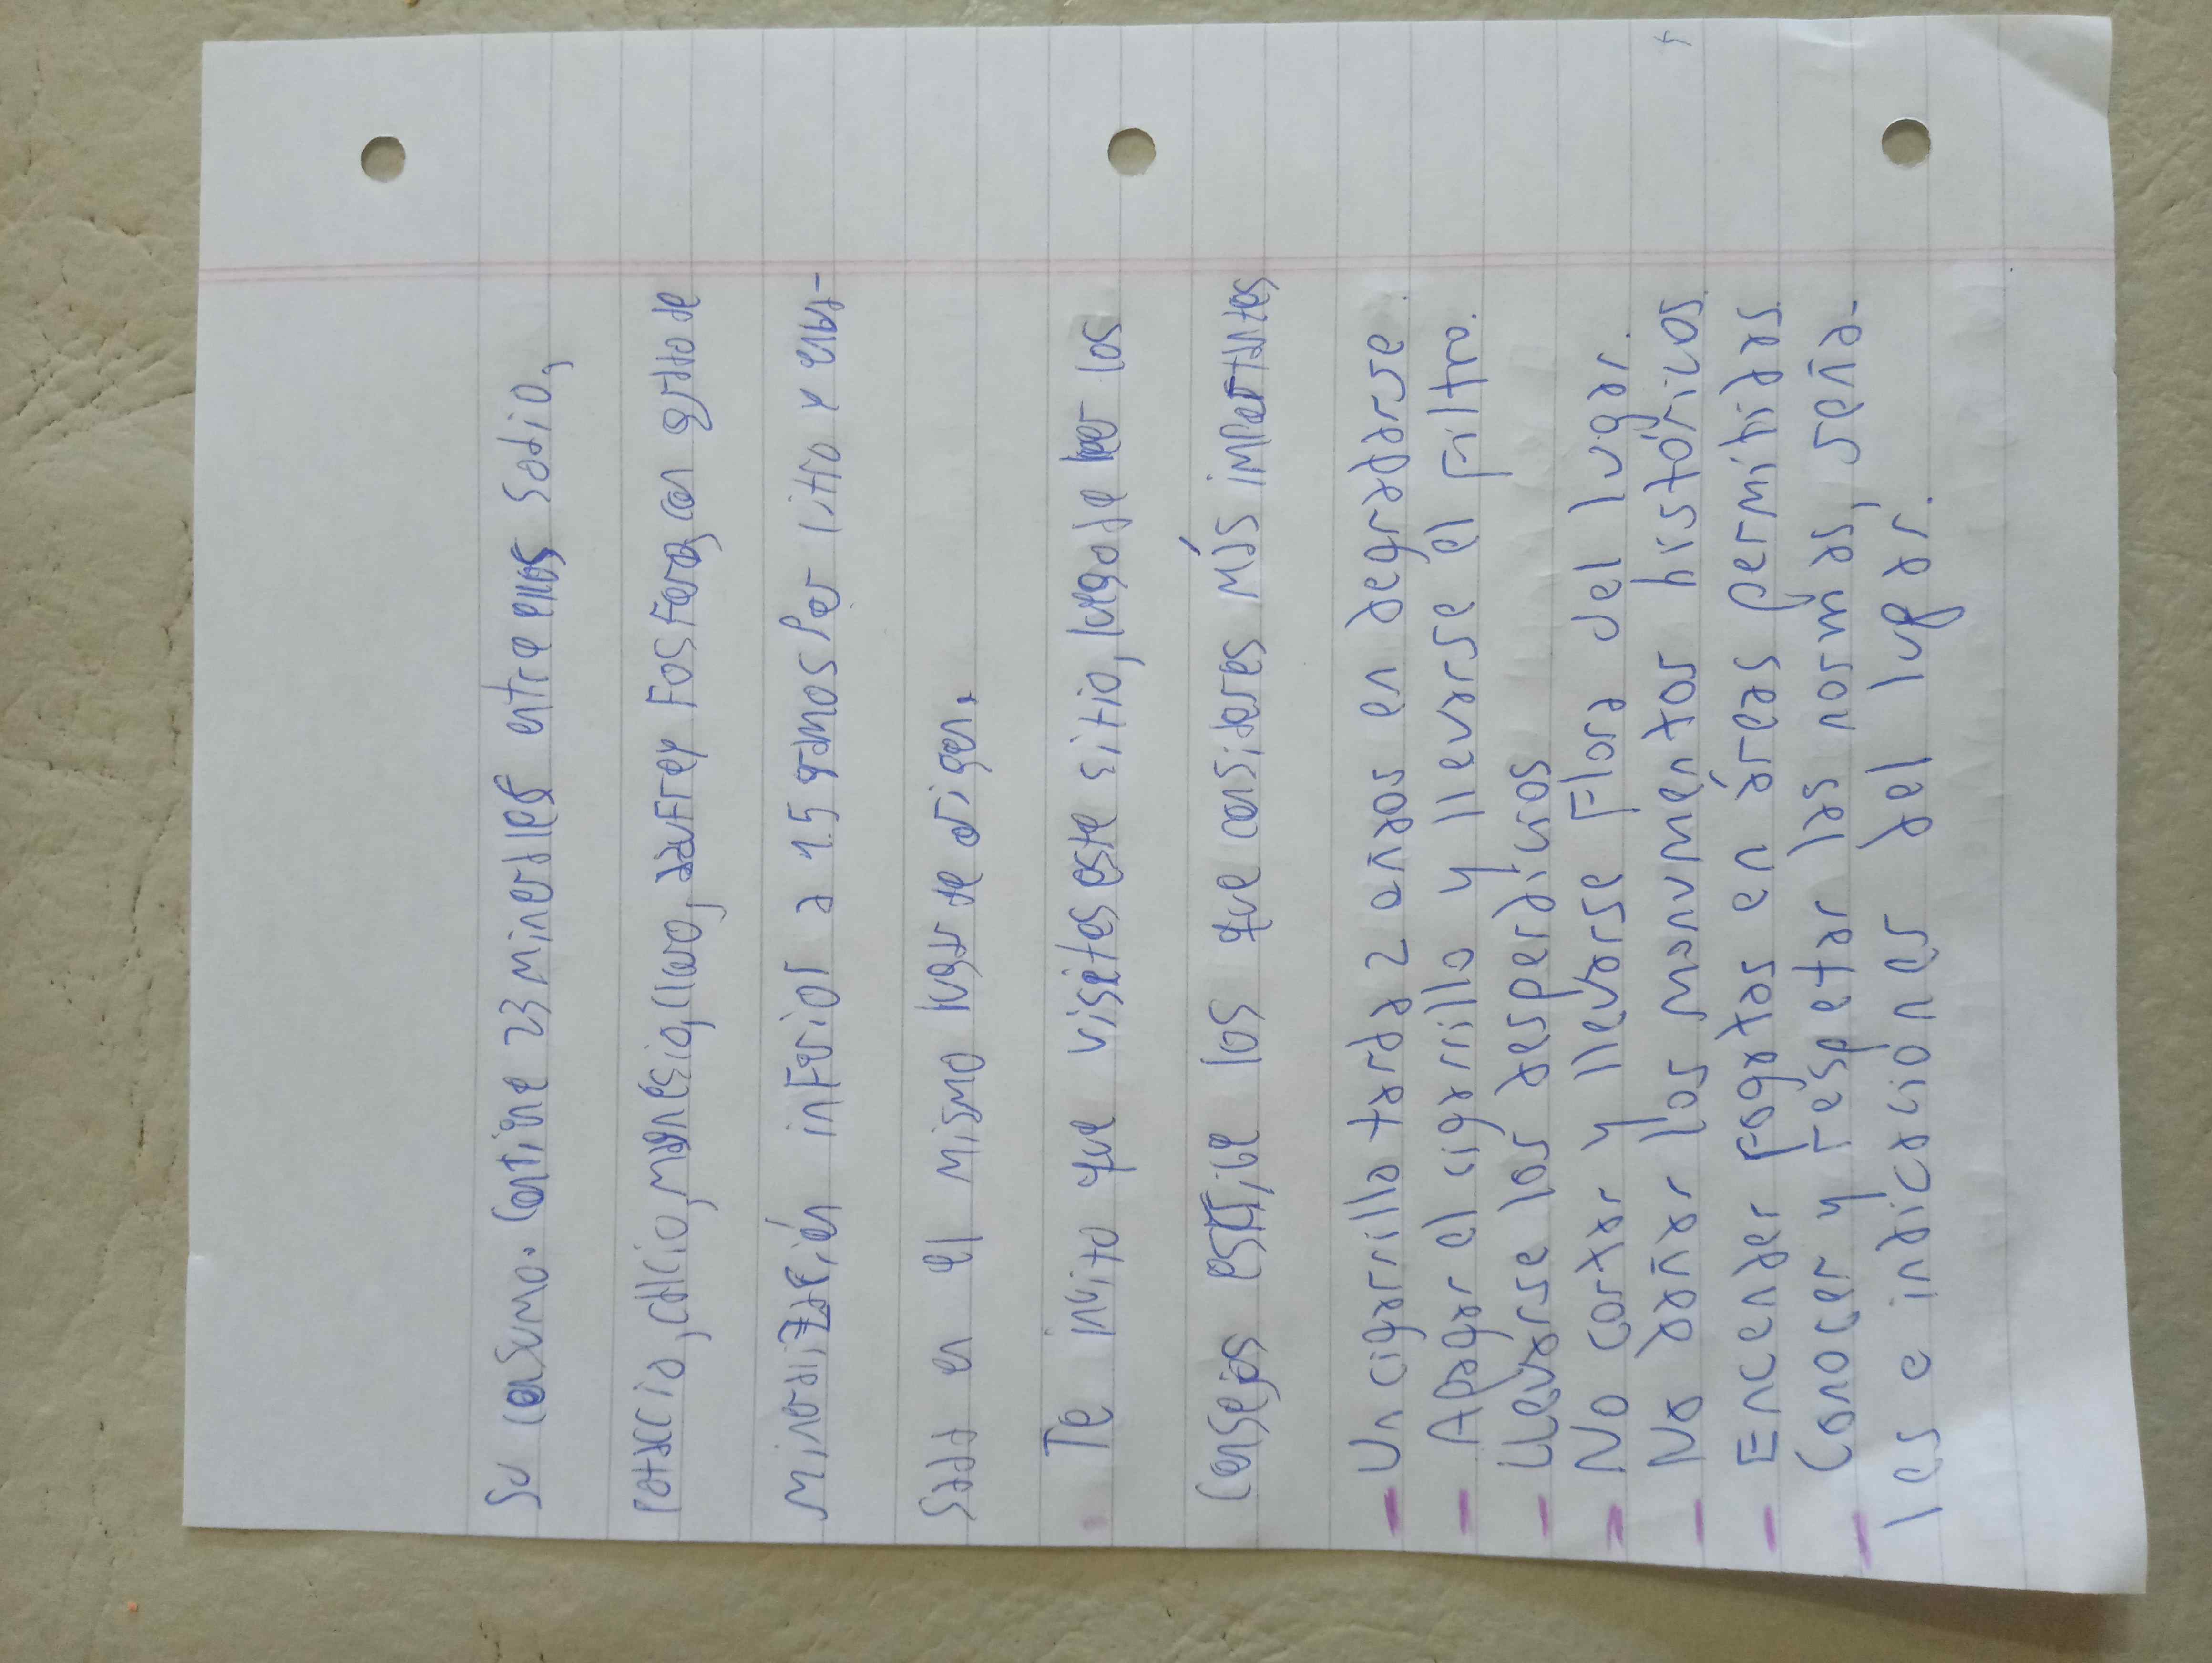 Su consumo. Contine 23 minerales entre ellos Sodio,
Potacio, calcio, magnesio, cloro, azufre y Fosforo, con grado de
mineralización inferior a 1.5 gramos por litro y enva-
sada en el mismo lugar de origen.
Te invito que visites este sitio, luego de leer los
Consejos escribe los que consideres más importantes
- Un cigarrillo tarda 2 años en degradarse.
- Apagar el cigarrillo y llevarse el filtro.
- Llevarse los desperdicios
- No cortar y llevarse Flora del lugar.
- No dañar los monumentos históricos.
- Encender fogatas en áreas permitidas
- Conocer y respetar las normas, seña-
les o indicaciones del lugar.